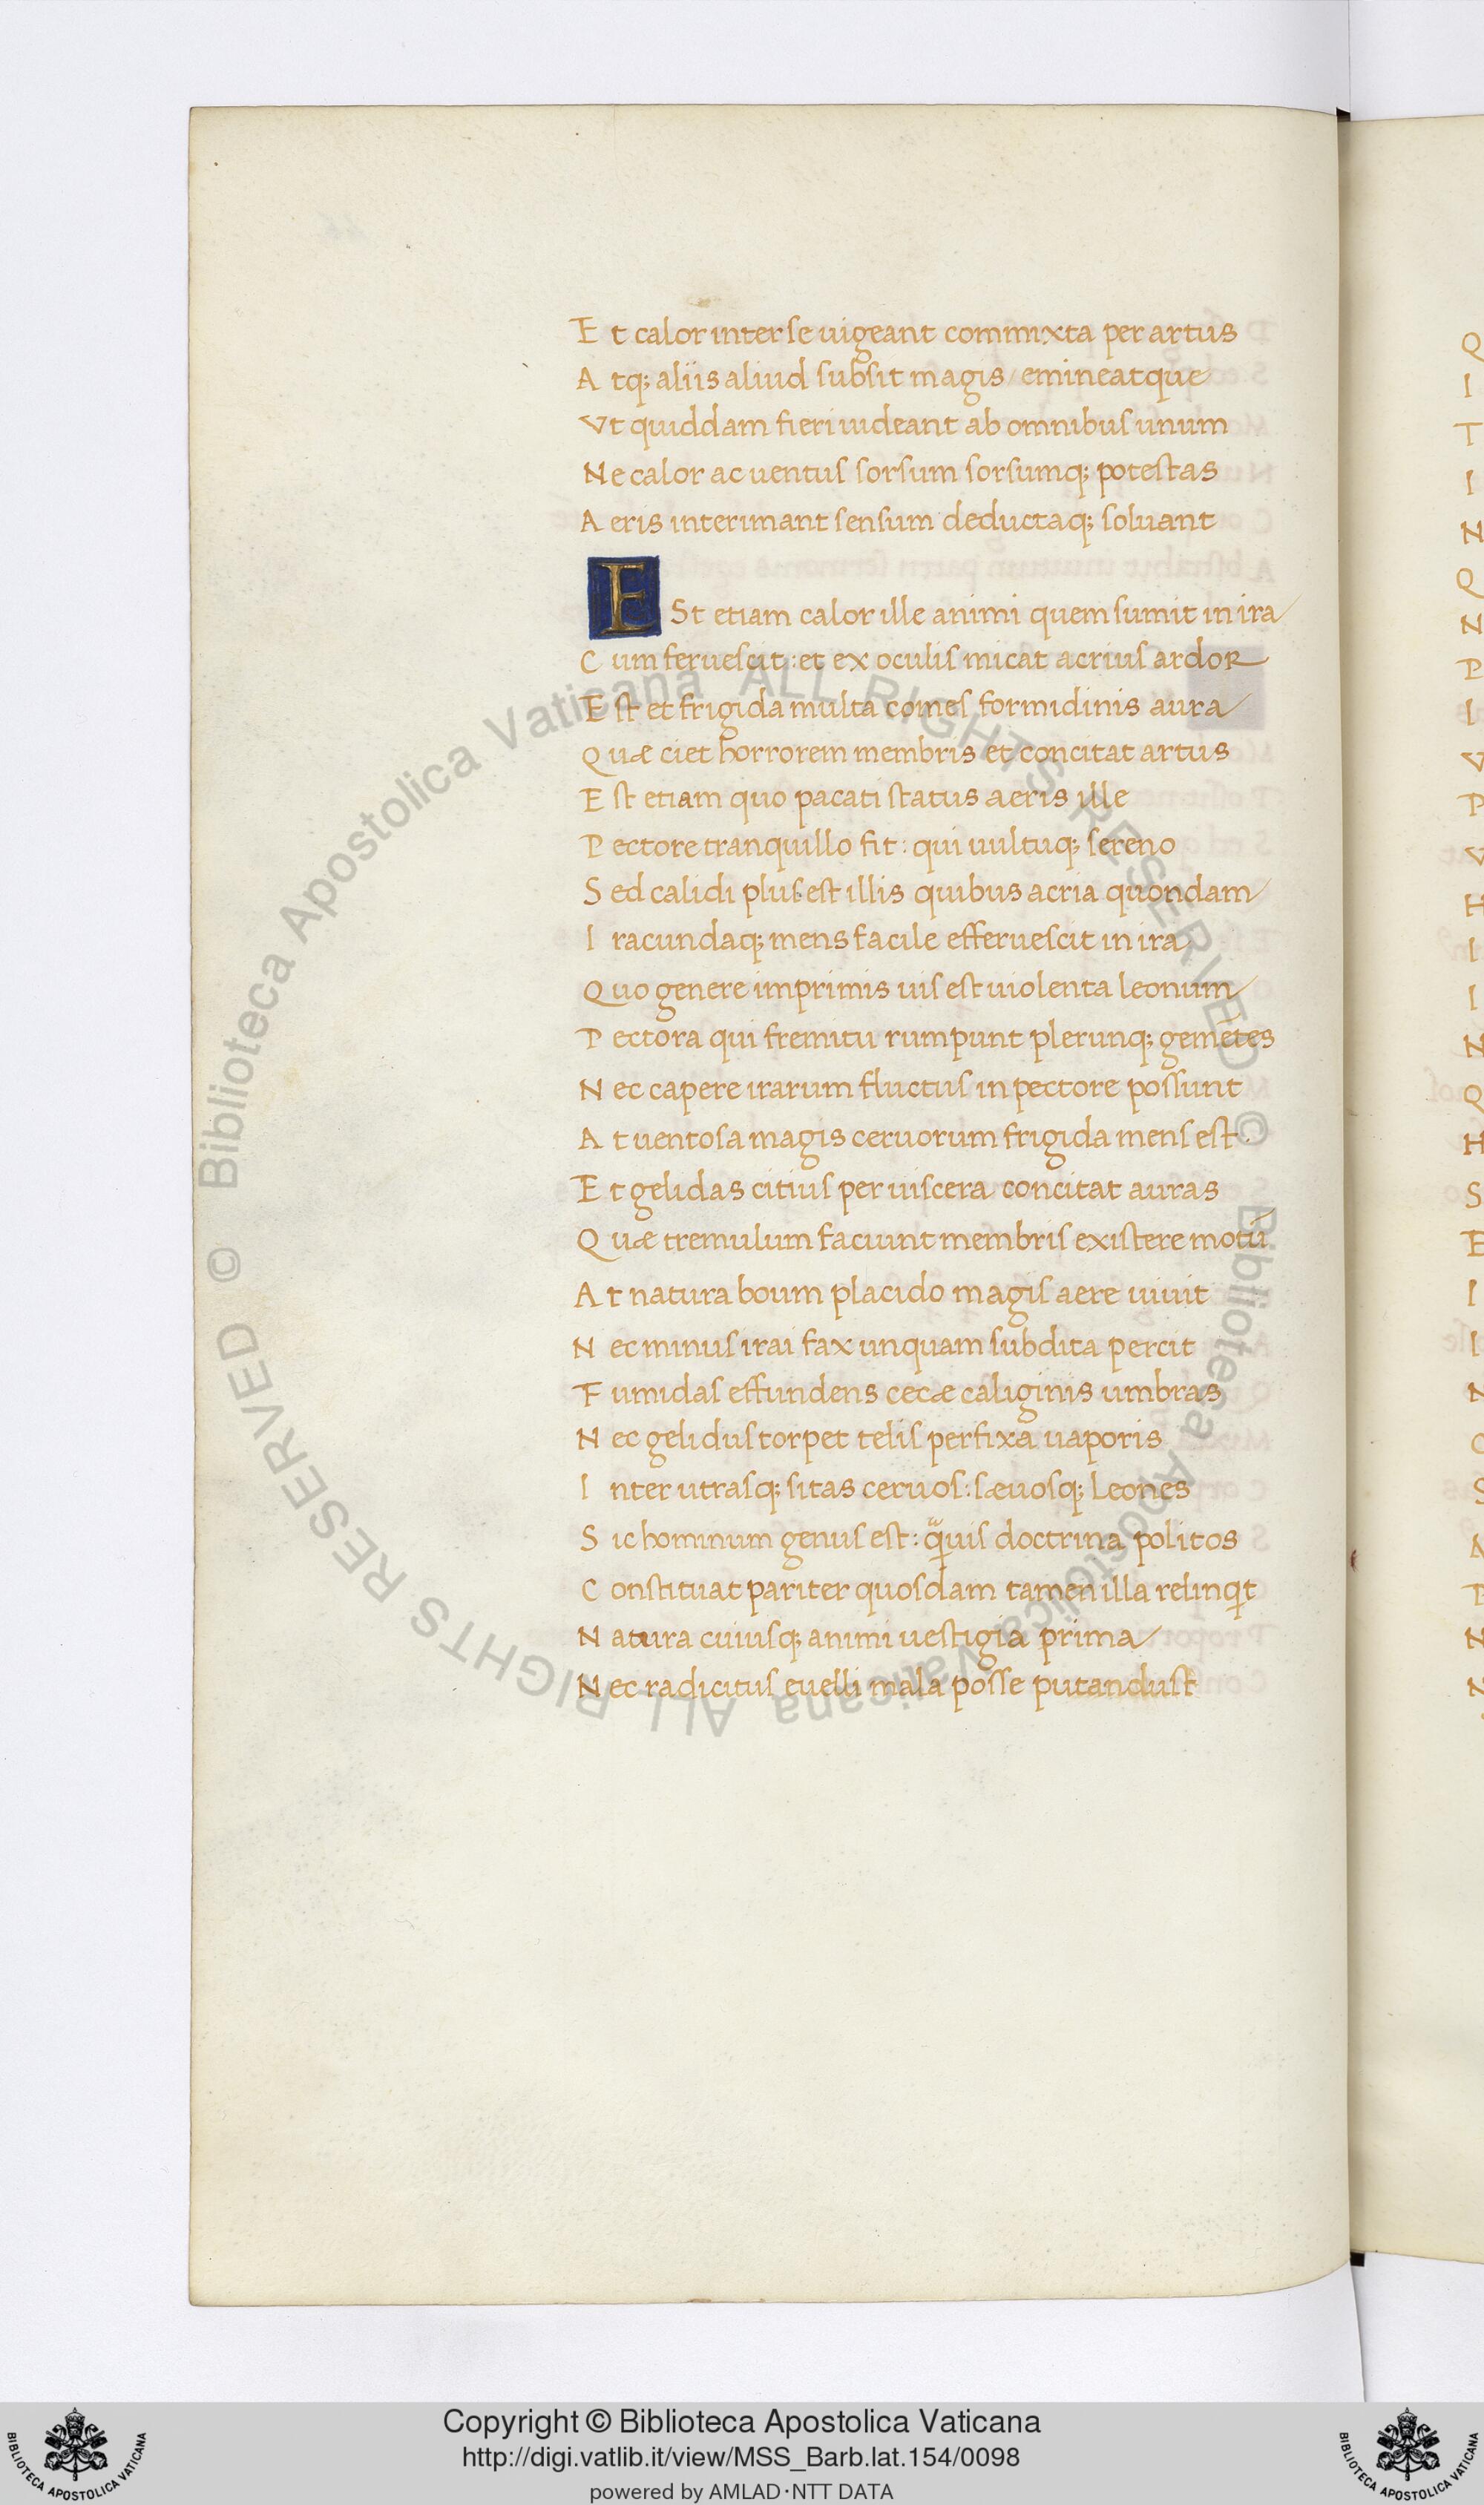 Et calor inter se uigeant commixta per artus
Atq; aliis aliud subsit magis / emineatque
Vt quiddam fieri uideant ab omnibus unum
Ne calor ac uentus sorsum sorsumq; potestas
Aeris interimant sensum deductaq; soluant
ESt etiam calor ille animi quem sumit in ira
Cum feruescit: et ex oculis micat acrius ardor
Est et frigida multa comes formidinis aura
Quæ ciet horrorem membris et concitat artus
Est etiam quo pacati status aeris ille
Pectore tranquillo fit: qui uultuq; sereno
Sed calidi plus est illis quibus acria quondam
Iracundaq; mens facile efferuescit in ira
Quo genere imprimis uis est uiolenta leonum
Pectora qui fremitu rumpunt plerunq; gemētes
Nec capere irarum fluctus in pectore possunt
At uentosa magis ceruorum frigida mens est.
Et gelidas citius per uiscera concitat auras
Quæ tremulum faciunt membris existere motū
At natura boum placido magis aere uiuit
Nec minus irai fax unquam subdita percit
Fumidas effundens cecæ caliginis umbras
Nec gelidus torpet telis perfixa uaporis
Inter utrasq; sitas ceruos: sæuosq; Leones
Sic hominum genus est: q̃uis doctrina politos
Constituat pariter quosdam tamen illa relinqt
Natura cuiusq; animi uestigia prima
Nec radicitus euelli mala posse putandust
Q
I
T
I
N
Q
N
P
I
V
P
V
H
I
I
N
Q
H
S
E
I
I
N
C
S
A
T
N
N
© Biblioteca Apostolica Vaticana ALL RIGHTS RESERVED © Biblioteca Apostolica Vaticana ALL RIGHTS RESERVED
Copyright © Biblioteca Apostolica Vaticana
http://digi.vatlib.it/view/MSS_Barb.lat.154/0098
powered by AMLAD·NTT DATA
BIBLIOTECA APOSTOLICA VATICANA
BIBLIOTECA APOSTOLICA VATICANA